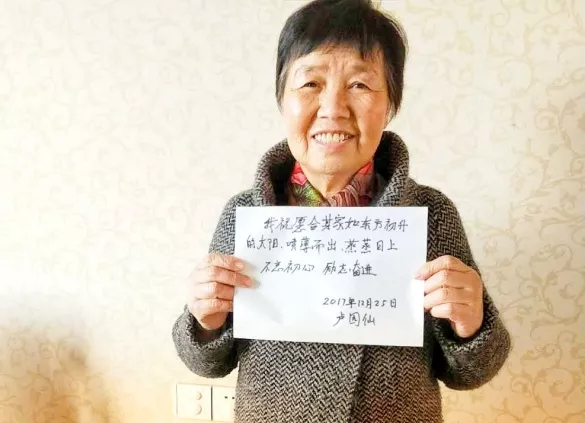 我祝愿合其家如东方初升
的太阳，喷薄而出，蒸蒸日上
不忘初心 励志奋进
2017年12月25日
卢国仙